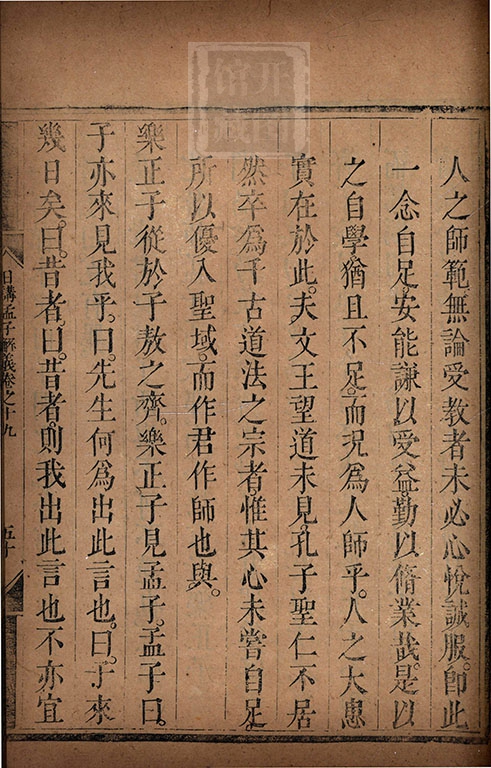 人之師範無論受教者未必心悅誠服。即此
一念自足。安能謙以受益。勤以脩業哉。是以
之自學。猶且不足。而況爲人師乎。人之大患
實在於此。夫文王望道未見。孔子聖仁不居
然卒爲千古道法之宗者惟其心未嘗自足。
所以優入聖域。而作君作師也與。
樂正子從於子敖之齊。樂正子見孟子。孟子曰。
子亦來見我乎。曰。先生何爲出此言也。曰。子來
幾日矣。曰。昔者。曰。昔者。則我出此言也不亦宜
日講孟子解義卷之十九 五十